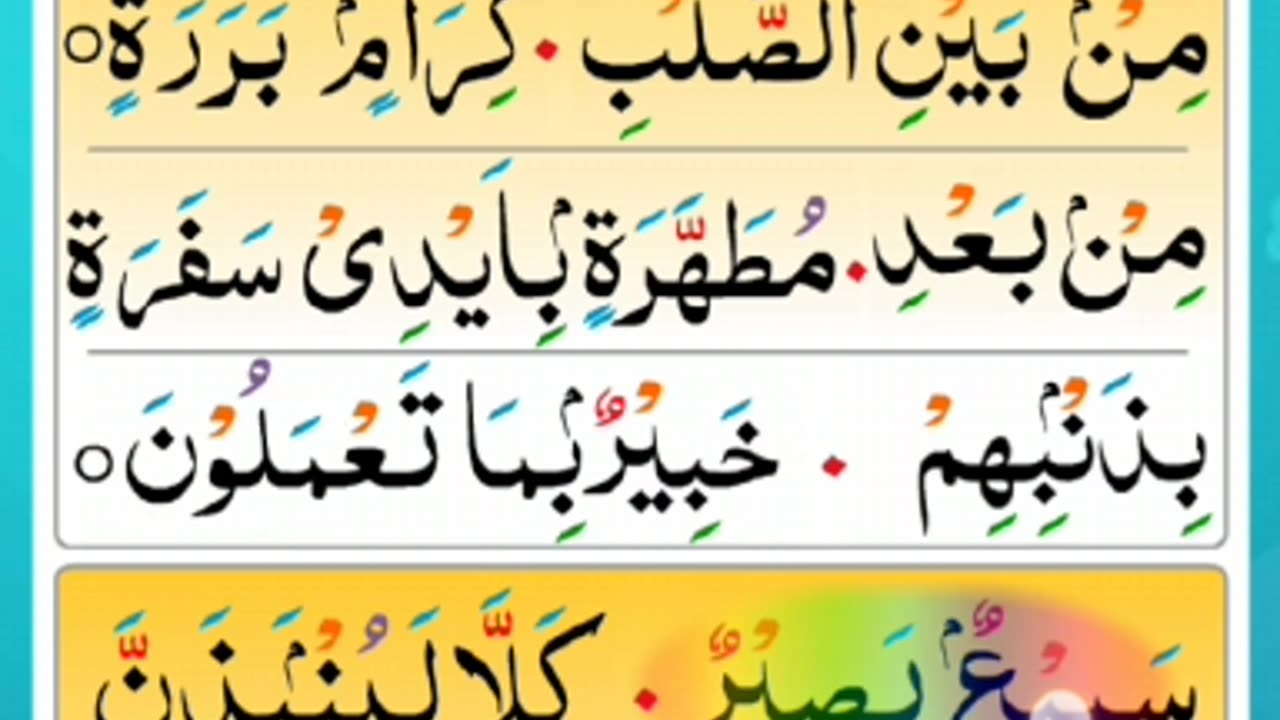 مِنْۢ بَيْنِ الصُّلْبِ ۰ كِرَامٍۢ بَرَرَةٍ ○
مِنْۢ بَعْدِ ۰ مُطَهَّرَةٍۢ بِاَيْدِىْ سَفَرَةٍ
بِذَنْۢبِهِمْ ۰ خَبِيْرٌۢ بِمَا تَعْمَلُوْنَ ○
سَمِيْعٌۢ بَصِيْرٌ ۰ كَلَّا لَيُنْۢبَذَنَّ